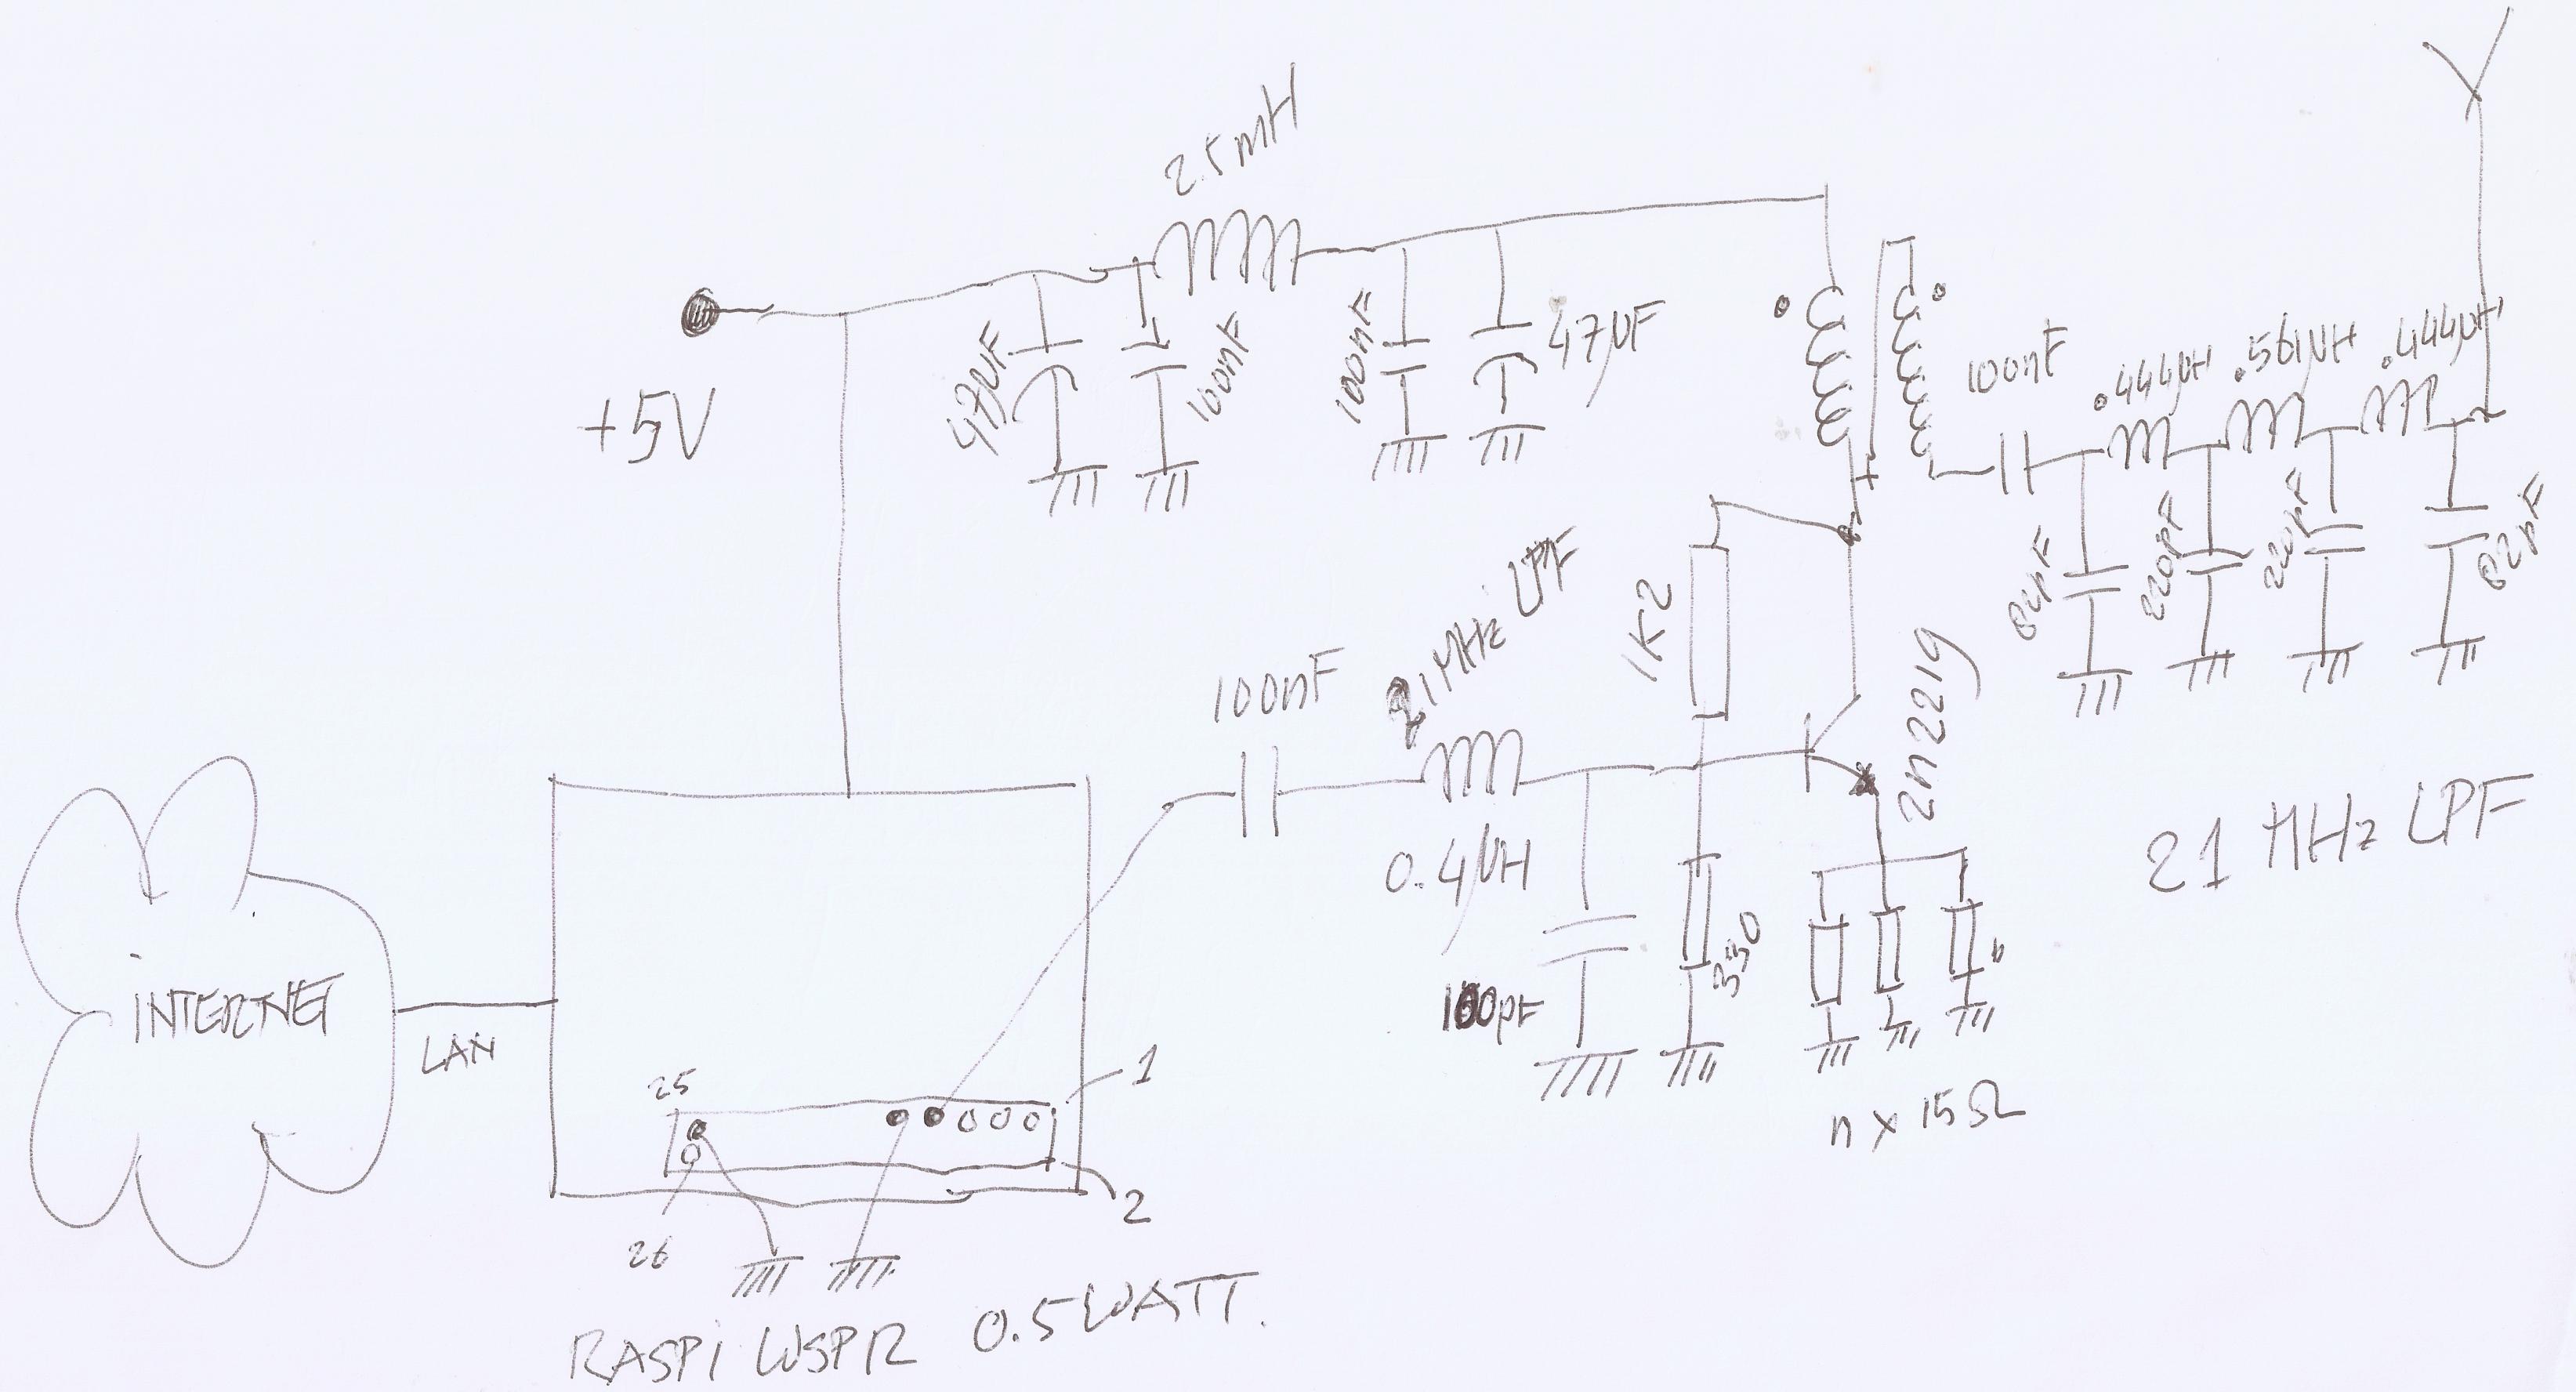 2.5mH
+5V
47µF
100nF
100nF
47µF
100nF
.444µH
.561µH
.444µH
82pF
220pF
220pF
82pF
21 MHz LPF
1K2
2n2219
100nF
21MHz LPF
0.4µH
100pF
330
n x 15Ω
INTERNET
LAN
25
1
26
2
RASPi WSPR 0.5WATT.